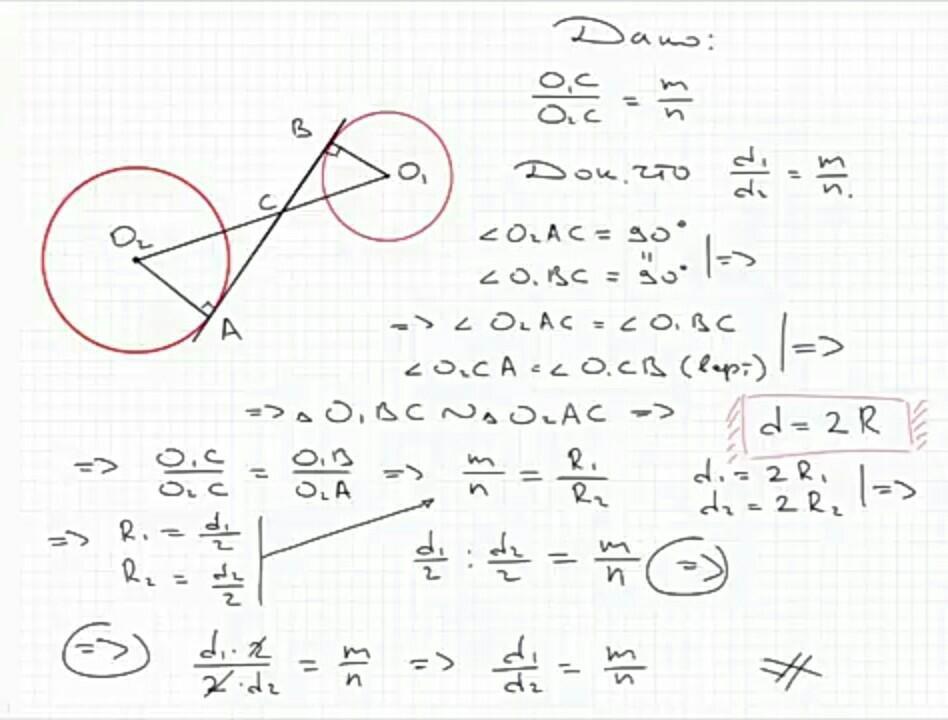 Дано:
O₁C/O₂C = m/n
Док. что d₁/d₂ = m/n.
B
O₁
C
O₂
A
∠O₂AC = 90°
"
∠O₁BC = 90° | =>
=> ∠O₂AC = ∠O₁BC
∠O₂CA = ∠O₁CB (верт) | =>
=> △O₁BC ~ △O₂AC =>
d = 2R
=> O₁C/O₂C = O₁B/O₂A => m/n = R₁/R₂
d₁ = 2R₁
d₂ = 2R₂ | =>
=> R₁ = d₁/2
R₂ = d₂/2
d₁/2 : d₂/2 = m/n =>
=> d₁·2/2·d₂ = m/n => d₁/d₂ = m/n